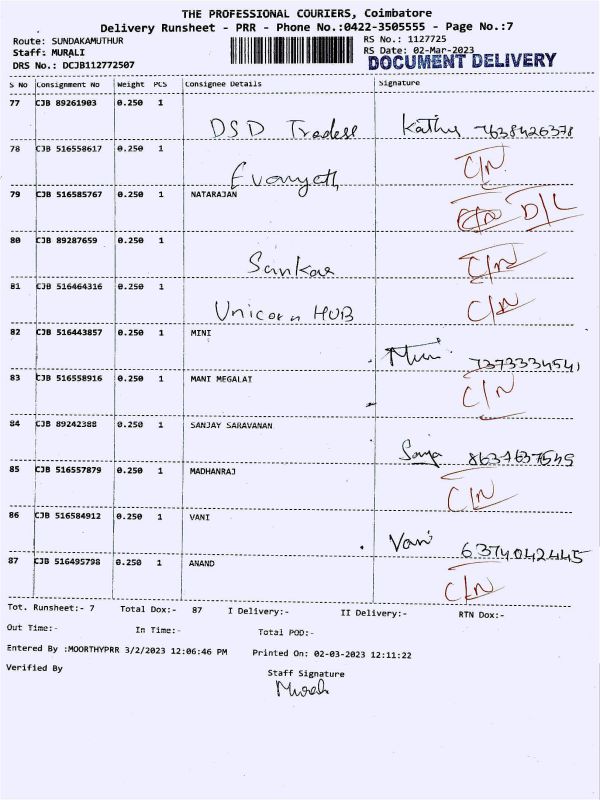 THE PROFESSIONAL COURIERS, Coimbatore
Delivery Runsheet - PRR - Phone No.:0422-3505555 - Page No.:7
Route: SUNDAKAMUTHUR RS No.: 1127725
Staff: MURALI RS Date: 02-Mar-2023
DRS No.: DCJB112772507 DOCUMENT DELIVERY
S No Consignment No Weight PCS Consignee Details Signature
77 CJB 89261903 0.250 1
DSD Tradess Kathy 7638426378
78 CJB 516558617 0.250 1 C/N
79 CJB 516585767 0.250 1 NATARAJAN
C/N D/L
80 CJB 89287659 0.250 1
Sankar C/N
81 CJB 516464316 0.250 1
Unicorn HUB C/N
82 CJB 516443857 0.250 1 MINI
Mini 7373334541
83 CJB 516558916 0.250 1 MANI MEGALAI
C/N
84 CJB 89242388 0.250 1 SANJAY SARAVANAN
Sanja 8637637545
85 CJB 516557879 0.250 1 MADHANRAJ
C/N
86 CJB 516584912 0.250 1 VANI
Vani 6374042445
87 CJB 516495798 0.250 1 ANAND
C/N
Tot. Runsheet:- 7 Total Dox:- 87 I Delivery:- II Delivery:- RTN Dox:-
Out Time:- In Time:- Total POD:-
Entered By :MOORTHYPRR 3/2/2023 12:06:46 PM Printed On: 02-03-2023 12:11:22
Verified By Staff Signature